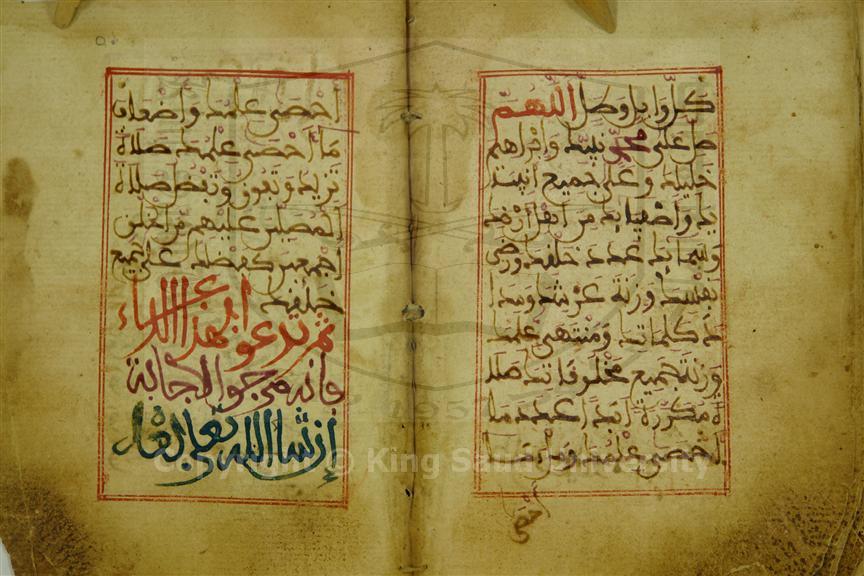 كل وابل وطل اللهم
صل على محمد نبيك وابراهيم
خليلك وعلى جميع انبيا
يك واصفيايك من اهل ارضك
وسمايك عدد خلقك ورضى
نفسك وزنة عرشك ومدا
د كلماتك ومنتهى علمك
وزنة جميع مخلوقاتك صلا
ة مكررة ابدا عدد ما
احصى علمك ومل ما
احصى
احصى علمك واضعاف
ما احصى علمك صلاة
تزيد وتفوق وتفضل صلاة
المصلين عليهم من الخلق
اجمعين كفضلك على جميع
خلقك
ثم تدعوا بهذا الدعاء
فانه مرجوا الاجابة
ان شا الله تعلى
Copyright © King Saud University
1957